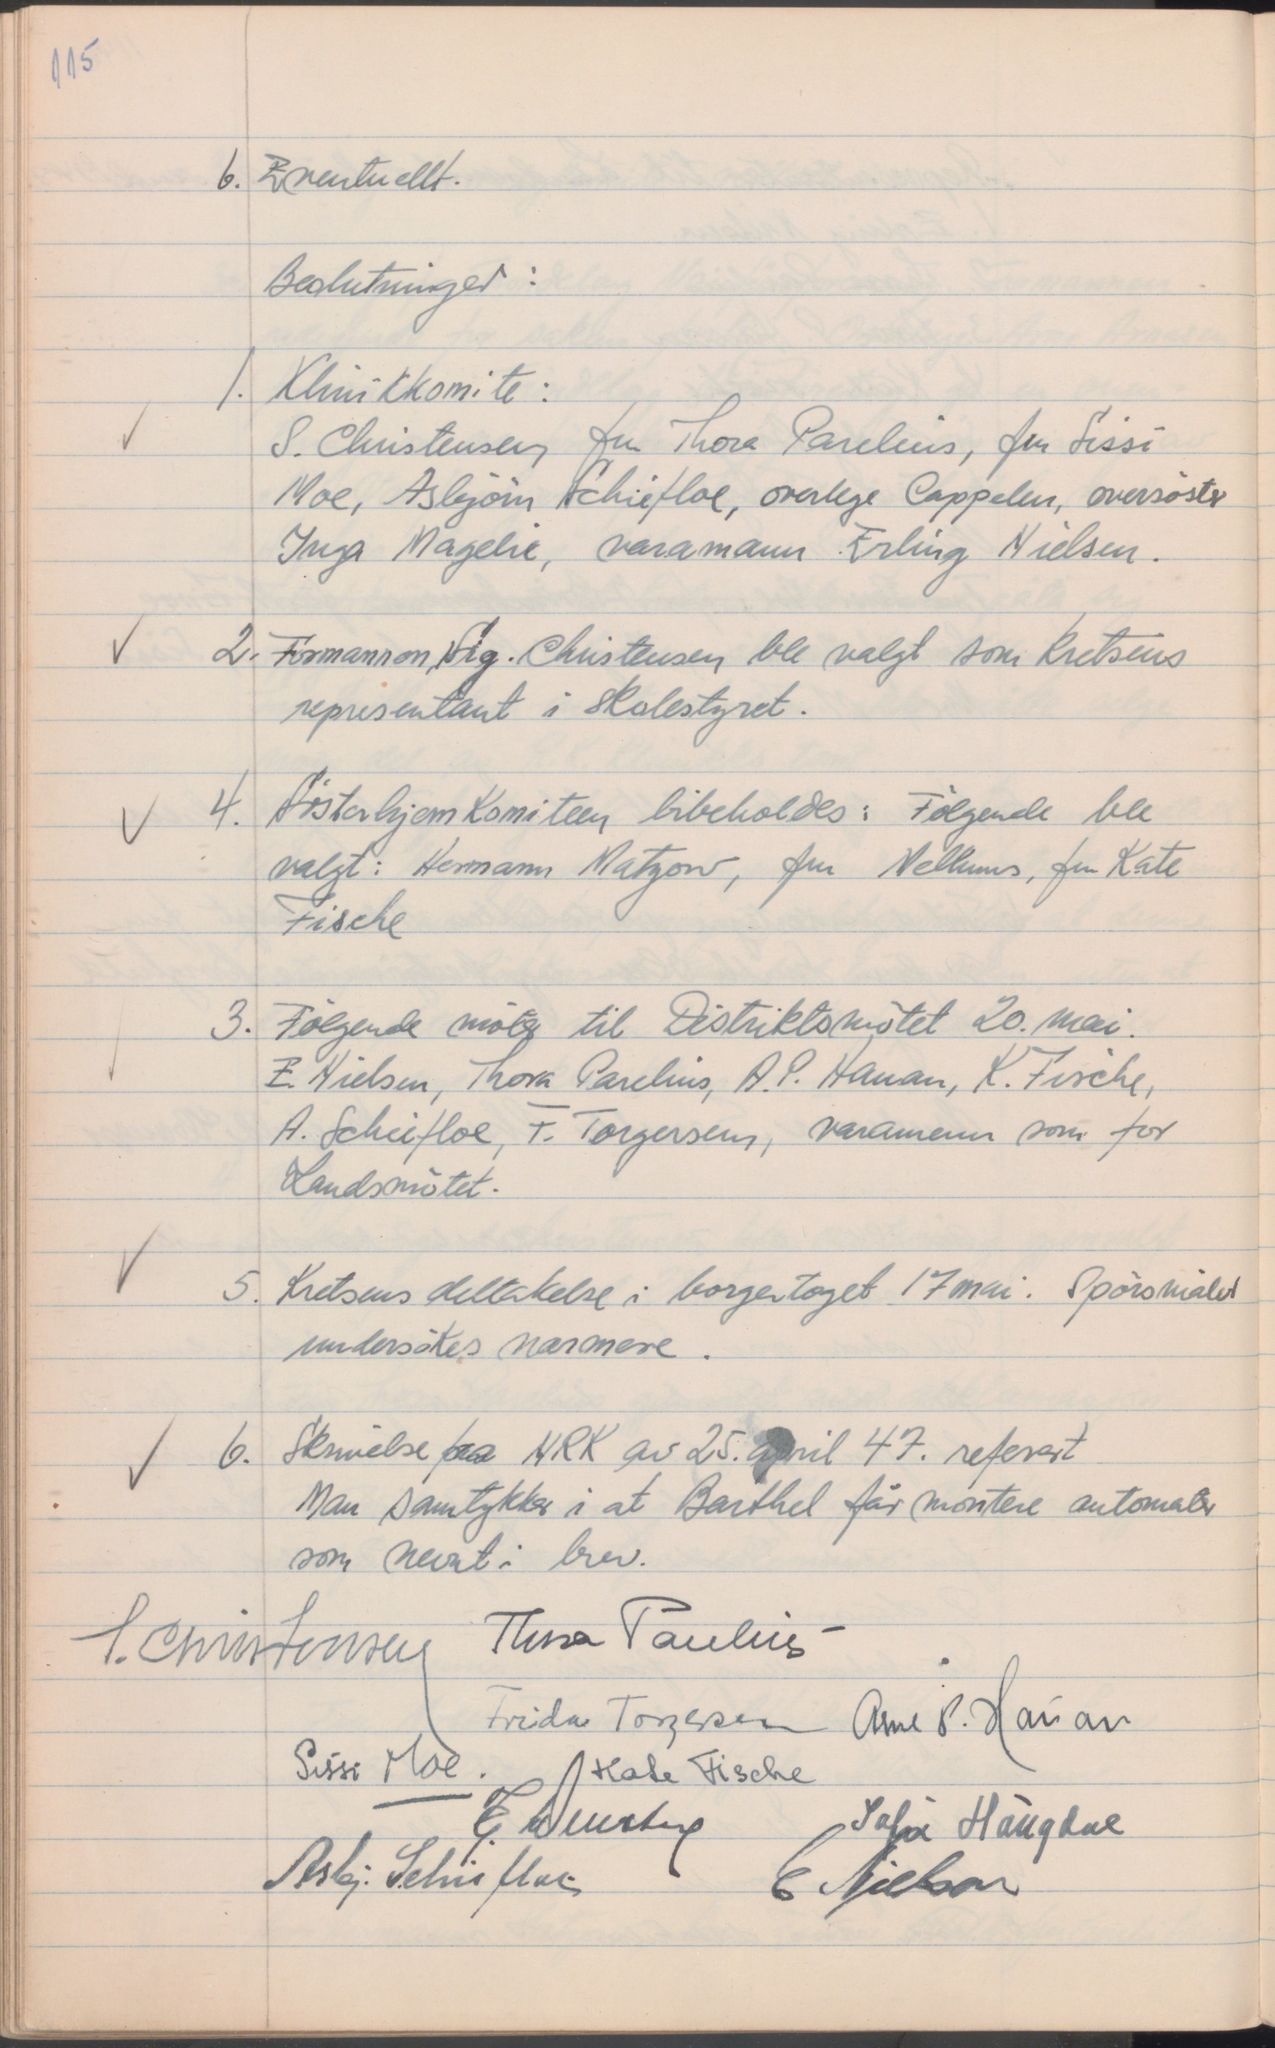 115
6. Eventuellt.
Beslutninger :
1. Klinikkomite :
S. Christensen fru Thora Parelius, fru Sissi
Moe, Asbjörn Schiefloe, overlege Cappelen, oversöster
Inga Magelie, varamann Erling Nielsen.
2. Formannen, Sig. Christensen ble valgt som kretsens
representant i skolestyret.
4. Sösterhjemkomiteen bibeholdes : Fölgende ble
valgt : Hermann Matzow, fru Mellums, fru Kate
Fische
3. Fölgende möter til Distriktsmötet 20. mai.
E. Nielsen, Thora Parelius, A.P. Hanan, K. Fische,
A. Schiefloe, F. Torgersen, varamenn som for
Landsmötet.
5. Kretsens deltakelse i borgertoget 17 mai. Spörsmålet
undersökes narmere .
6. Skrivelse fra NRK av 25. april 47. referert
Man samtykker i at Barthel får montere automater
som nevnt i brev.
S. Christensen Thora Parelius
Frida Torgersen Arne P. Hanan
Sissi Moe. Kate Fische
Asbj. Schiefloe E Nielsen